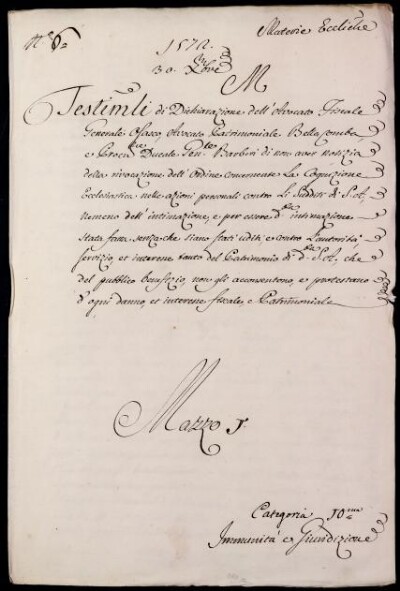 N.° 6.°
Materie Ecclíche
1572.
30. Xbre
M
Testim.li di Dichiarazione dell'Avvocato Fiscale
Generale Ofasco, Avvocato Patrimoniale Bellacomba,
e Proc.re Ducale Barberi di non aver notizia
della rivocazione dell'Ordine concernente La Cognizione
Ecclesiastica nelle azioni personali contro Li Sudditi di S. A.
nemeno dell'intimazione, e per essere d.a intimazione
stata fatta senza che siano stati uditi, e contro L'autorità
servizio, et interesse tanto del Patrimonio di d.a S. A., che
del pubblico benefizio, non gli acconsentono, e protestano
d'ogni danno, et interesse fiscale, e Patrimoniale
Mazzo 1.°
Categoria 10.ma
Immunità e Giurisdizione